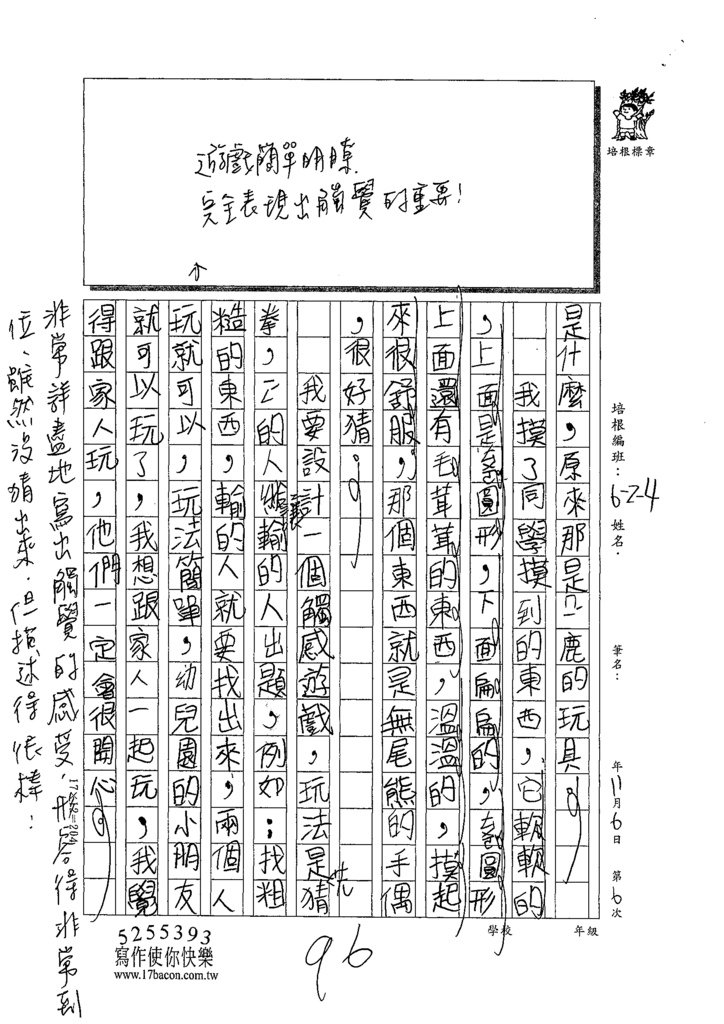 培根標章
遊戲簡單明瞭
完全表現出觸覺的重要!
培根編班:6-2-4 姓名: 筆名: 年11月6日 第6次
學校 年級
是什麼,原來那是ㄇㄧ鹿的玩具。
我摸了同學摸到的東西,它軟軟的
,上面是圓形,下面扁扁的,圓形
上面還有毛茸茸的東西,溫溫的,摸起
來很舒服,那個東西就是無尾熊的手偶
,很好猜。
我要設計一個觸感遊戲,玩法是先猜
拳,的人輸的人出題,例如:找粗
糙的東西,輸的人就要找出來,兩個人
玩就可以,玩法簡單,幼兒園的小朋友
就可以玩了,我想跟家人一起玩,我覺
得跟家人玩,他們一定會很開心。
非常詳盡地寫出觸覺的感受,形容得非常到
位、雖然沒猜出來,但描述得很棒!
5255393
寫作使你快樂
www.17bacon.com.tw
96